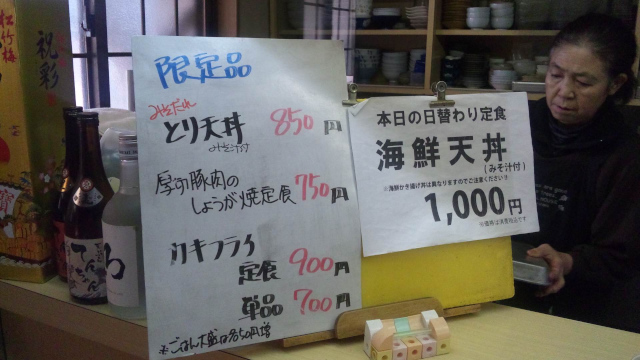 松竹梅
祝彩
限定品
みそだれ
とり天丼 850円
みそ汁付
厚切豚肉の
しょうが焼定食 750円
カキフライ
定食 900円
単品 700円
※ごはん大盛は各50円増
本日の日替わり定食
海鮮天丼
(みそ汁付)
※海鮮かき揚げ丼は異なりますのでご注意ください!!
1,000円
※価格は消費税込です
てんてん